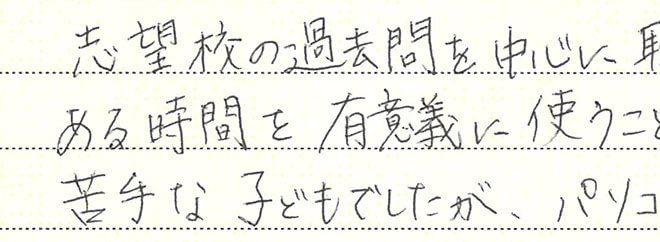 志望校の過去問を中心に取
ある時間を有意義に使うこと
苦手な子どもでしたが、パソコ